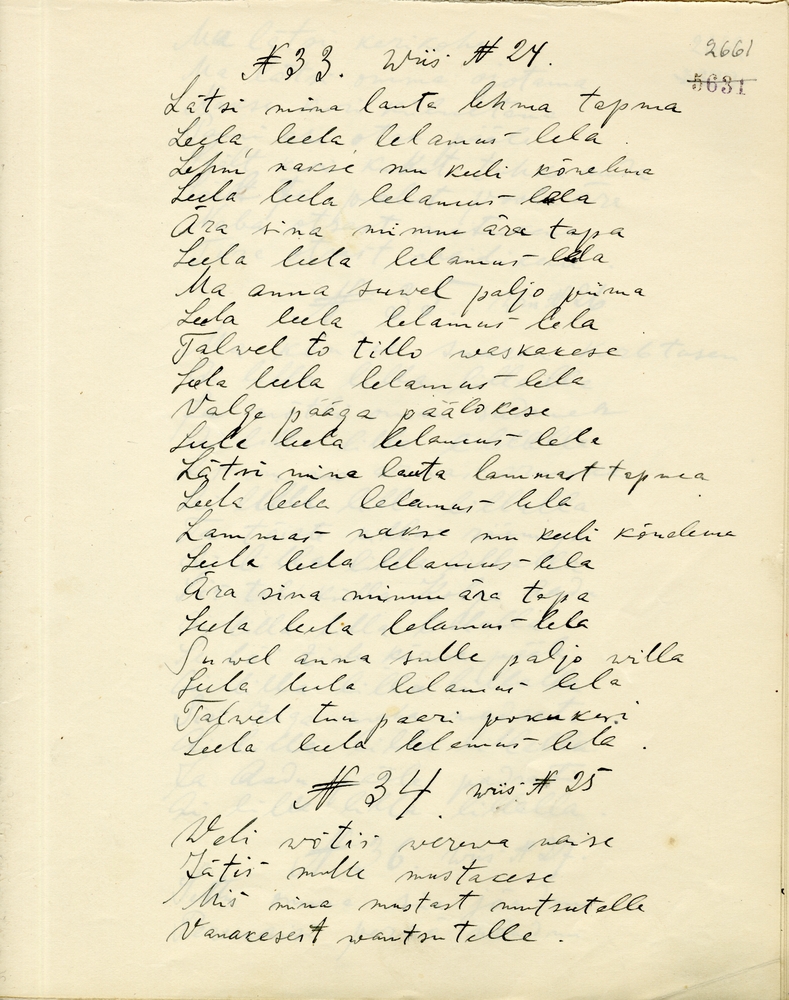 № 33. Wiis № 24.
2661
5631
Lätsi mina lauta lehma tapma
Leela leela lelamus-lela.
Lehm nakse mu keeli kõnelma
Leela leela lelamus-lela
Ära sina minnu ära tapa
Leela leela lelamus-lela
Ma anna suwel paljo piima
Leela leela lelamus-lela
Talwel to tillo waskakese
Leela leela lelamus-lela
Valge pääga päälokese
Leela leela lelamus-lela
Lätsi mina lauta lammast tapma
Leela leela lelamus-lela
Lammas nakse mu keeli kõnelema
Leela leela lelamus-lela
Ära sina minnu ära tapa
Leela leela lelamus-lela
Suwel anna sulle paljo willa
Leela leela lelamus lela
Talwel tuu paari pokukesi
Leela leela lelamus-lela.
№ 34. wiis № 25
Weli wõtis werewa naise
Jätis mulle mustakese
Mis mina mustast mutsutelle
Vanakesest wantsutelle.